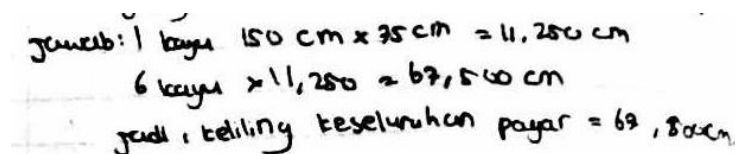 jawab: 1 kayu 150 cm x 75 cm = 11,250 cm
6 kayu x 11,250 = 67,500 cm
jadi, keliling keseluruhan pagar = 67,500cm